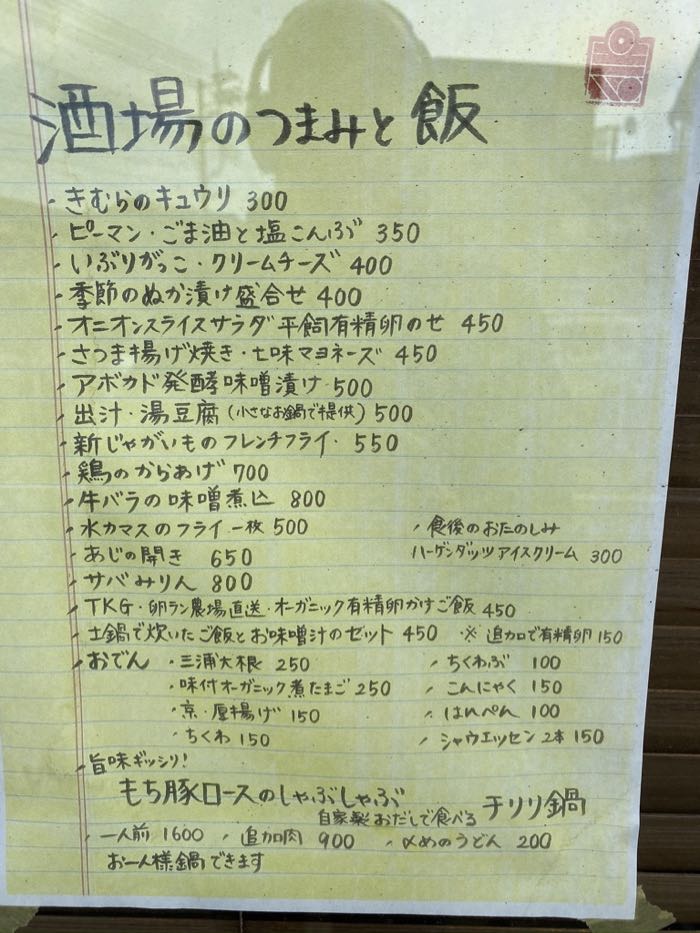 酒場のつまみと飯
きむらのキュウリ 300
ピーマン・ごま油と塩こんぶ 350
いぶりがっこ・クリームチーズ 400
季節のぬか漬け盛合せ 400
オニオンスライスサラダ平飼有精卵のせ 450
さつま揚げ焼き・七味マヨネーズ 450
アボカド発酵味噌漬け 500
出汁・湯豆腐(小さなお鍋で提供) 500
新じゃがいものフレンチフライ. 550
鶏のからあげ 700
牛バラの味噌煮込 800
水カマスのフライ 一枚 500
あじの開き 650
サバみりん 800
食後のおたのしみ
ハーゲンダッツ アイスクリーム 300
TKG・卵ラン農場直送・オーガニック有精卵かけご飯 450
土鍋で炊いたご飯とお味噌汁のゼット 450 ※ 追加で有精卵 150
おでん ・三浦大根 250
・味付オーガニック煮たまご 250
・京・厚揚げ 150
・ちくわ 150
ちくわぶ 100
こんにゃく 150
はんぺん 100
シャウエッセン 2本 150
旨味ギッシリ!
もち豚ロースのしゃぶしゃぶ
自家製おだしで食べる チリリ鍋
一人前 1600 追加肉 900 〆めのうどん 200
お一人様鍋できます